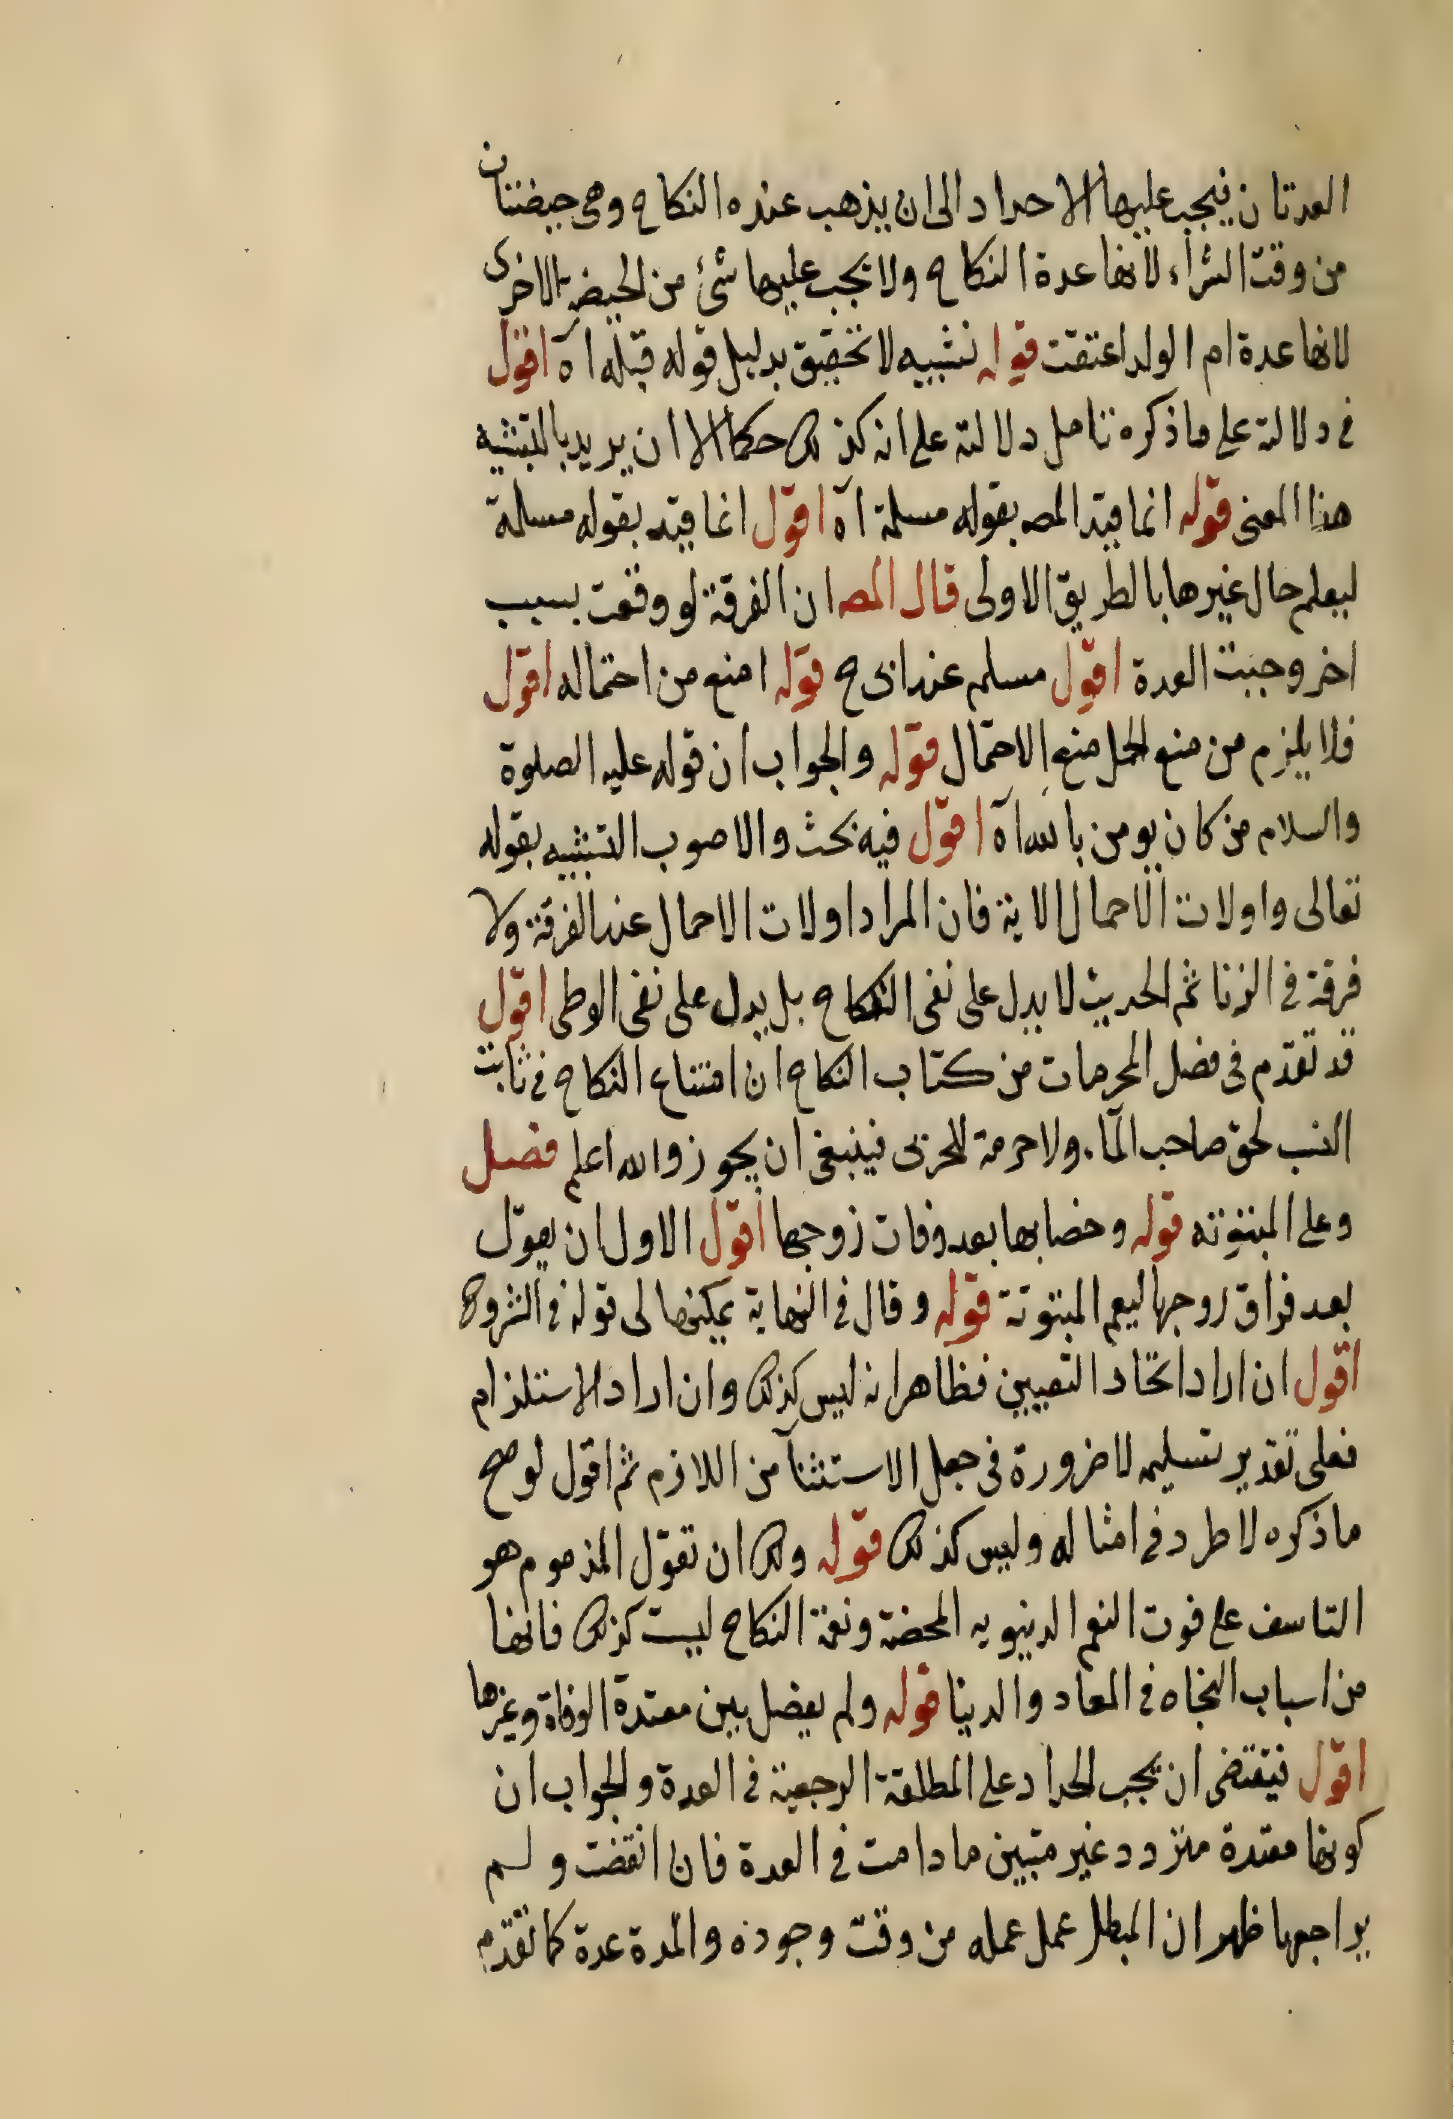 العدتان فيجب عليها الاحداد الى ان يذهب عنده النكاح وهى حيضتان
من وقت الشراء لانها عدة النكاح ولا تجب عليها شئ من الحيضة الاخرى
لانها عدة ام الولد اعتقت قوله تشبيه لا تحقيق بدليل قوله قبله اه اقول
فى دلالته على ما ذكره تامل دلالته على انه كذلك حكما الا ان يريد بالتشبيه
هذا المعنى قوله انما قيد المص بقوله مسلمة اه اقول انما قيد بقوله مسلمة
ليعلم حال غيرها بالطريق الاولى قال المص ان الفرقة لو وقعت بسبب
اخر وجبت العدة اقول مسلم عند ابى ح قوله امنع من احتماله اقول
فلا يلزم من منع الحمل منع الاحتمال قوله والجواب ان قوله عليه الصلوة
والسلام من كان يومن بالله اه اقول فيه بحث والاصوب التشبيه بقوله
تعالى واولات الاحمال الاية فان المراد اولات الاحمال عند الفرقة ولا
فرقة فى الزنا ثم الحديث لا يدل على نفى النكاح بل يدل على نفى الوطى اقول
قد تقدم فى فصل المحرمات من كتاب النكاح ان امتناع النكاح فى ثابت
النسب لحق صاحب المآء ولا حرمة للحربى فينبغى ان يجوز والله اعلم فصل
وعلى المبتوته قوله وخضابها بعد وفات زوجها اقول الاول ان يقول
بعد فراق زوجها ليعم المبتوتة قوله وقال فى النهاية يمكنها لى قوله فى الشروح
اقول ان اراد اتحاد التعيين فظاهر انه ليس كذلك وان اراد الاستلزام
فعلى تقدير تسليمه لا ضرورة فى جعل الاستثنآ من اللازم ثم اقول لو صح
ما ذكره لاطرد فى امثاله وليس كذلك قوله ولك ان تقول المذموم هو
التاسف على فوت النعم الدنيويه المحضة ونعمة النكاح ليست كذلك فانها
من اسباب النجاه فى المعاد والدنيا قوله ولم يفصل بين معتدة الوفاة وغيرها
اقول فيقتضى ان يجب الحداد على المطلقة الرجعية فى العدة والجواب ان
كونها معتدة متردد غير متبين ما دامت فى العدة فان انقضت ولم
يراجعها ظهر ان المبطل عمل عمله من وقت وجوده والمدة عدة كما تقدم